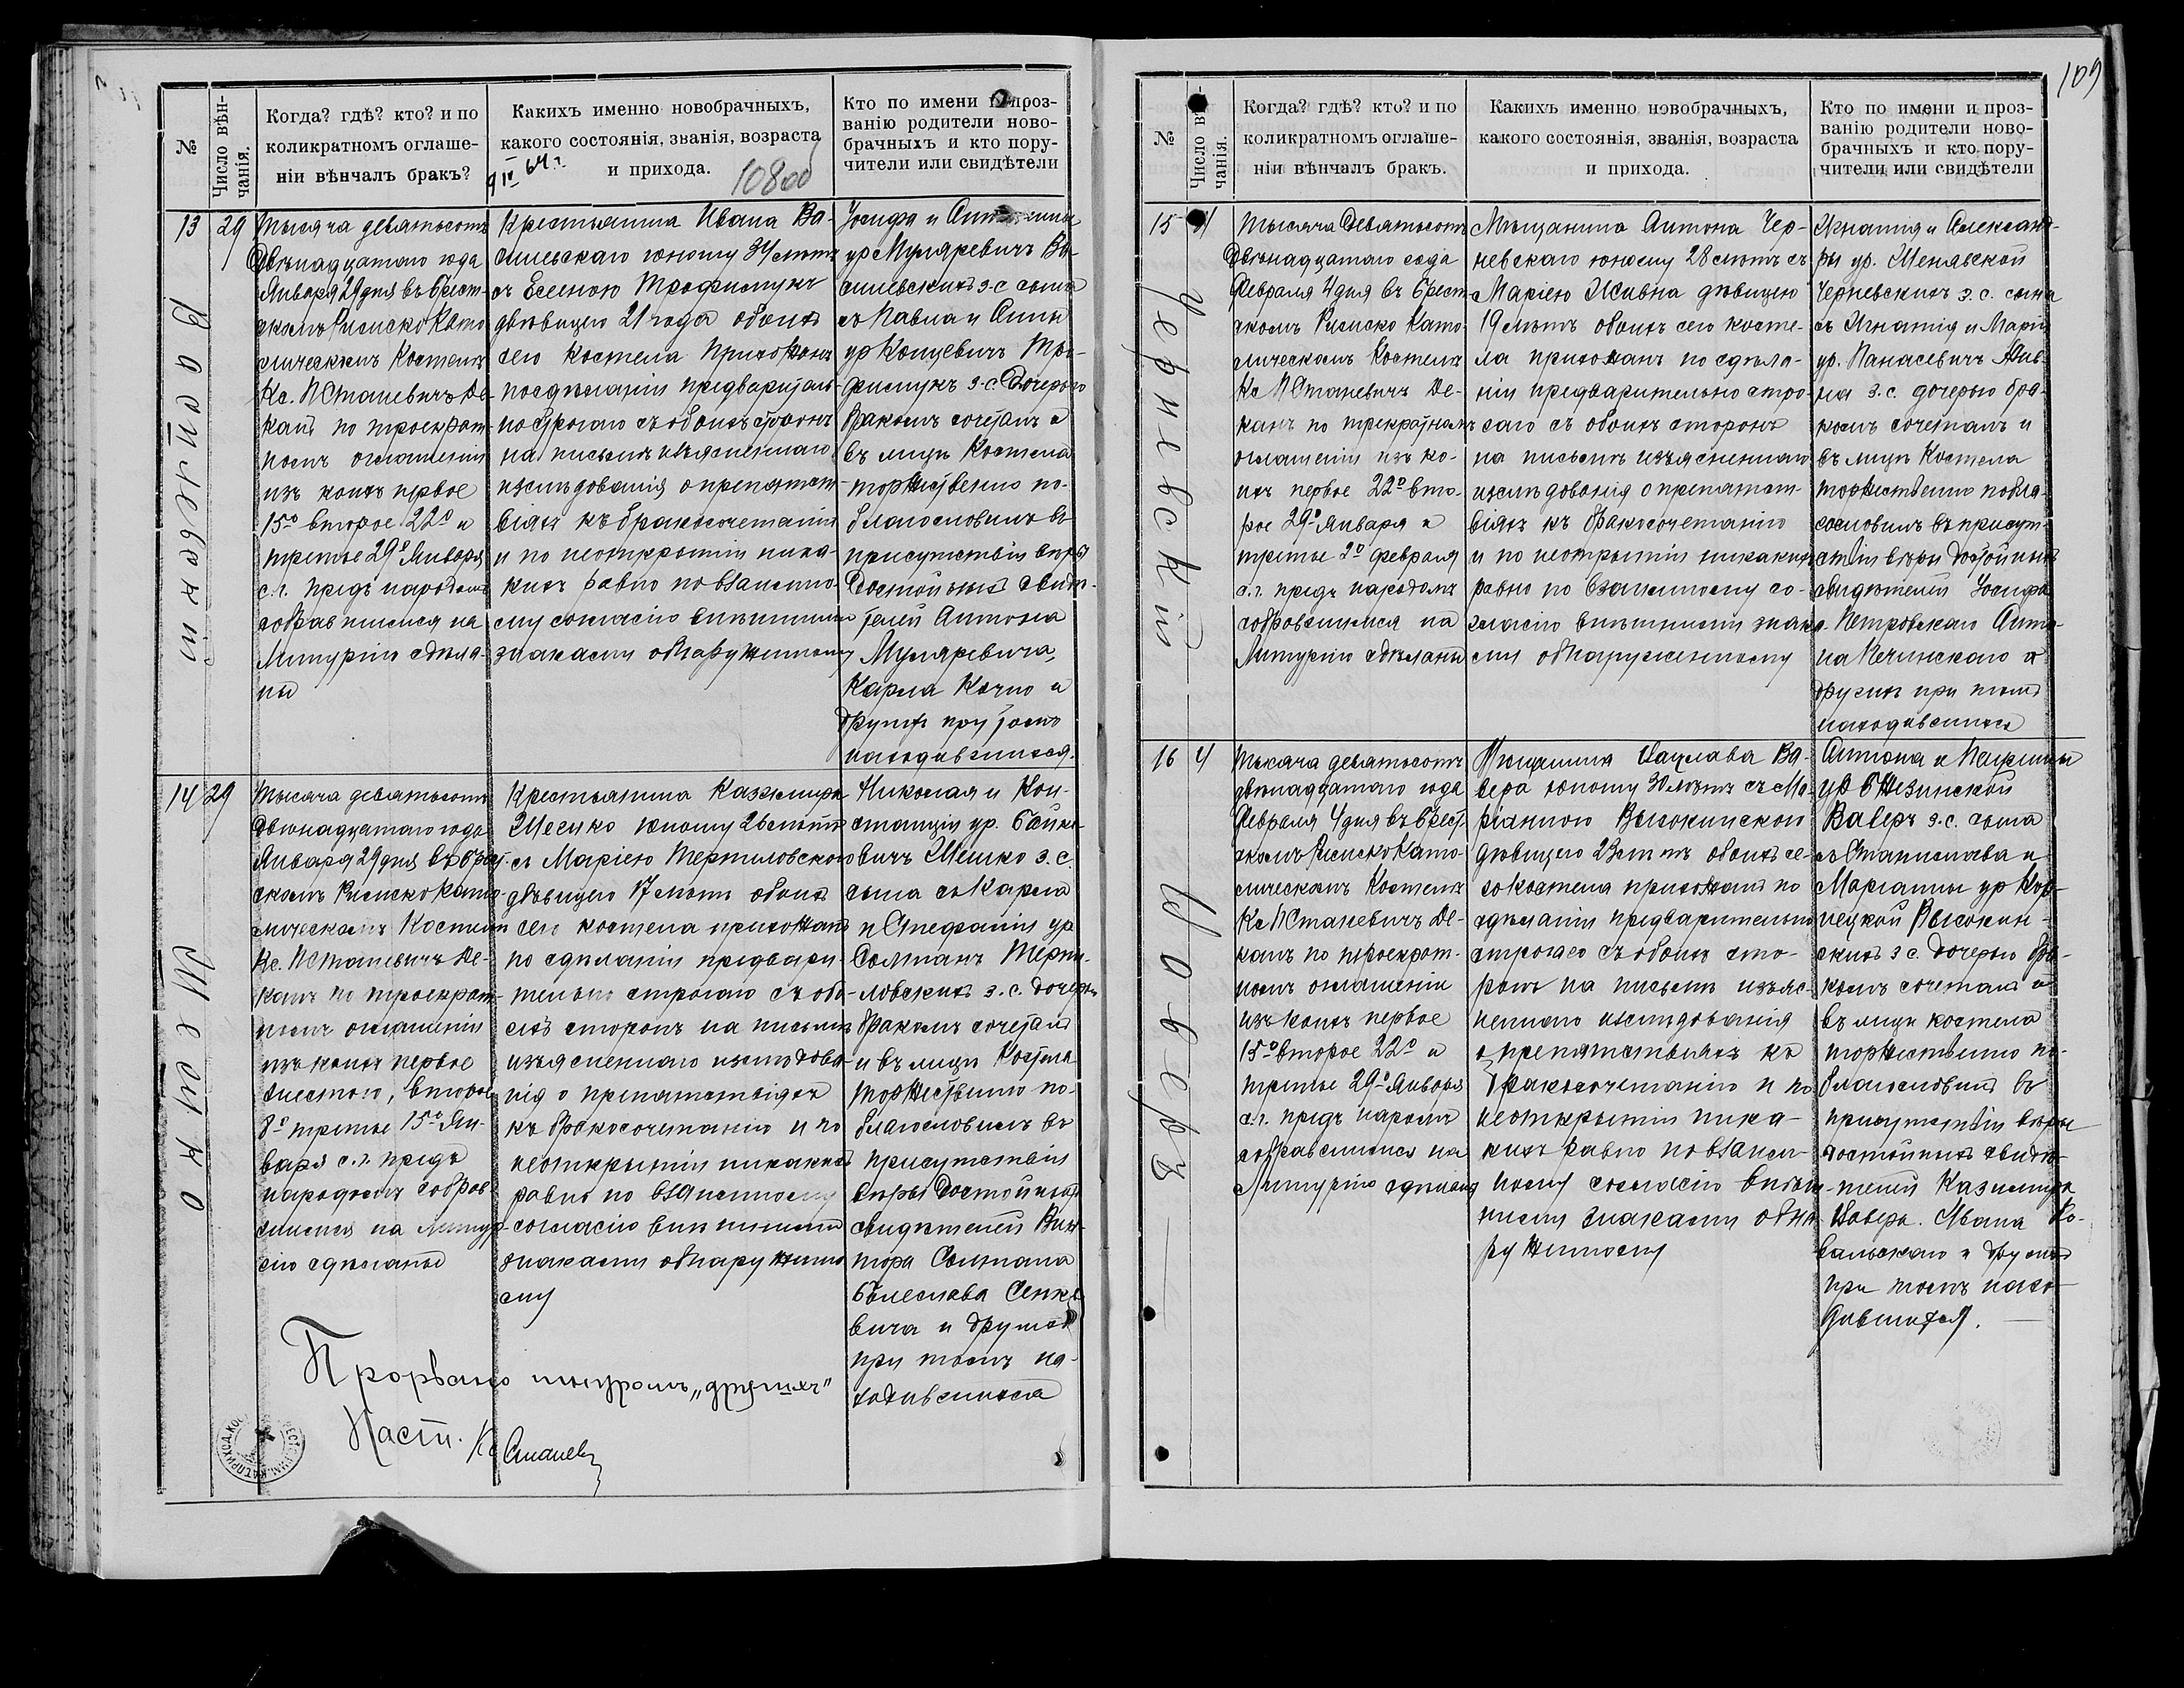 109
№
Число вѣн-
чанія.
Когда? гдѣ? кто? и по
коликратномъ оглаше-
ніи вѣнчалъ бракъ?
Какихъ именно новобрачныхъ,
какого состоянія, званія, возраста
и прихода.
10800
Кто по имени и проз-
ванію родители ново-
брачныхъ и кто пору-
чители или свидѣтели
13
29
Василевскій
Тысяча девятьсотъ
двѣнадцатаго года
Января 29 дня въ Брест-
скомъ Римско Като
лическомъ Костелѣ
Кс. П Станевичъ Де-
канъ по троекрат-
номъ оглашеніи
изъ коихъ первое
15º второе 22º и
третье 29º Января
с.г. предъ народомъ
собравшимся на
Литургію сдѣла-
ны
Крестьянина Ивана Ва-
силевскаго юношу 34 лѣтъ
съ Еленою Трофимукъ
дѣвицею 21 года обоихъ
сего костела прихожанъ
по сдѣланіи предваритель-
но строгаго съ обоихъ сторонъ
на письмѣ изъясненнаго
изслѣдованія о препятст-
віяхъ къ бракосочетанію
и по неоткрытіи ника-
кихъ равно по взаимно-
му согласію внѣшними
знаками обнаруженному
Іосифа и
ур Муляревичъ Ва-
силевскихъ з. с. сына
съ Павла и Анны
ур Концевичъ Тро-
фимукъ з. с. дочерью
бракомъ сочеталъ и
въ лицѣ Костела
торжественно по-
благословилъ въ
присутствіи вѣры
достойныхъ свидѣ-
телей Антона
Муляревича,
Карла Кочно и
другихъ при томъ
находившихся.
14
29
Шешко
Тысяча девятьсотъ
двѣнадцатаго года
Января 29 дня въ Брест-
скомъ Римско Като
лическомъ Костелѣ
Кс. П Станевичъ Де-
канъ по троекрат-
номъ оглашеніи
изъ коихъ первое
шестого, второе
8º третье 15º Ян-
варя с. г. предъ
народомъ собрав
шимся на Литур-
гію сдѣланы
Крестьянина Казимира
Шешко юношу 26 лѣтъ
съ Маріею Терпиловскою
дѣвицею 17 лѣтъ обоихъ
сего костела прихожанъ
по сдѣланіи предвари-
тельно строгаго съ обо-
ихъ сторонъ на письмѣ
изъясненнаго изслѣдова-
нія о препятствіяхъ
къ бракосочетанію и по
неоткрытіи никакихъ
равно по взаимному
согласію внѣшними
знаками обнаруженно
му
Николая и Кон-
станціи ур.
Шешко з. с.
сына съ Карла
и Стефаніи ур
Солтанъ Терпи-
ловскихъ з. с. дочерью
бракомъ сочеталъ
и въ лицѣ Костела
торжественно по-
благословилъ въ
присутствіи
вѣры достойныхъ
свидѣтелей Вик-
тора Солтана
Болеслава Сенке
вича и другихъ
при томъ на-
ходившихся
Прорвано шнуромъ „другихъ"
Наст. Кс Станевичъ
№
Число вѣн-
чанія.
Когда? гдѣ? кто? и по
коликратномъ оглаше-
ніи вѣнчалъ бракъ.
Какихъ именно новобрачныхъ,
какого состоянія, званія, возраста
и прихода.
Кто по имени и проз-
ванію родители ново-
брачныхъ и кто пору-
чители или свидѣтели
15
4
Черневскій
Тысяча девятьсотъ
двѣнадцатаго года
Февраля 4 дня въ Брест
скомъ Римско Като-
лическомъ Костелѣ
Кс П Станевичъ Де-
канъ по трекратномъ
оглашеніи изъ ко-
ихъ первое 22º вто-
рое 29º Января и
третье 2º февраля
с. г. предъ народомъ
собравшимся на
Литургію сдѣланы
Мѣщанина Антона Чер-
невскаго юношу 28 лѣтъ съ
Маріею Живна дѣвицею
19 лѣтъ обоихъ сего косте-
ла прихожанъ по сдѣла-
ніи предварительно стро-
гаго съ обоихъ сторонъ
на письмѣ изъясненнаго
изслѣдованія о препятст-
віяхъ къ бракосочетанію
и по неотрытіи никакихъ
равно по взаимному со-
гласію внѣшними знака-
ми обнаруженному
Игнатія и Александ-
ры ур. Шенявской
Черневскихъ з. с. сына
съ Игнатія и Маріи
ур. Панасевичъ Жив-
на з. с. дочерью бра-
комъ сочеталъ и
въ лицѣ Костела
торжественно побла-
гословилъ въ присут-
ствіи вѣры достойныхъ
свидѣтелей Іосифа
Петровскаго Анто-
на Печинскаго и
другихъ при томъ
находившихся
16
4
Ваверъ
Тысяча девятьсотъ
двѣнадцатаго года
Февраля 4 дня въ Брест
скомъ Римско Като-
лическомъ Костелѣ
Кс П Станевичъ Де-
канъ по троекрат-
номъ оглашеніи
изъ коихъ первое
15º второе 22º и
третье 29º Января
с. г. предъ народомъ
собравшимся на
Литургію сдѣланы
Мѣщанина Вацлава Ва-
вера юношу 30 лѣтъ съ Ма-
ріанною Высокинскою
дѣвицею 23 лѣтъ обоихъ се-
го костела прихожанъ по
сдѣланіи предварительно
строгаго съ обоихъ сто-
ронъ на письмѣ изъяс-
неннаго изслѣдованія
о препятствіяхъ къ
бракосочетанію и по
неоткрытіи ника-
кихъ равно по взаим-
ному согласію внѣш-
ними знаками обна-
руженному
Антона и Паулины
ур Бжезинской
Ваверъ з. с. сына
съ Станислава и
Маріанны ур
Высокин-
скихъ з с. дочерью бра-
комъ сочеталъ и
въ лицѣ костела
торжественно по-
благословилъ въ
присутствіи вѣры
достойныхъ свидѣ-
телей Казимира
Вавера. Ивана Ко-
вальскаго и другихъ
при томъ нахо-
дившихся.